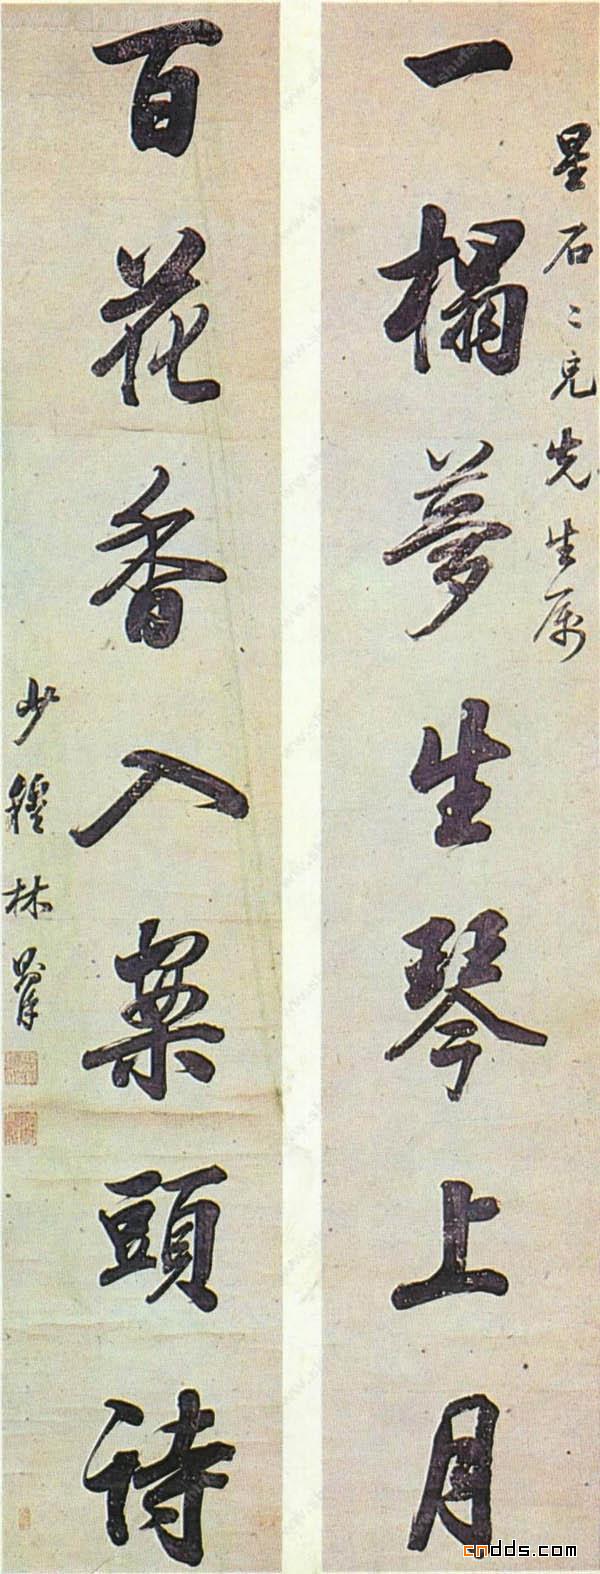 星石二兄先生屬
一榻夢生琴上月
百花香入案頭詩
少穆林則徐
cndds.com